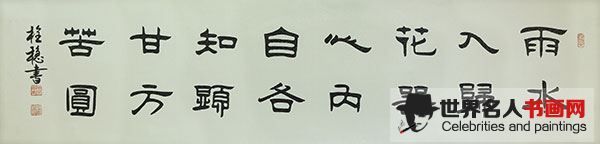 雨入花心自知甘苦
水歸器内各顯方圓
書
世界名人书画网
Celebrities and paintings